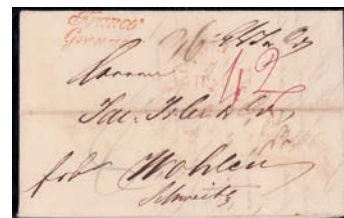 Franco
Grenze
42
Herren
Jac. Isler & Co
fco Wohlen
Schweitz